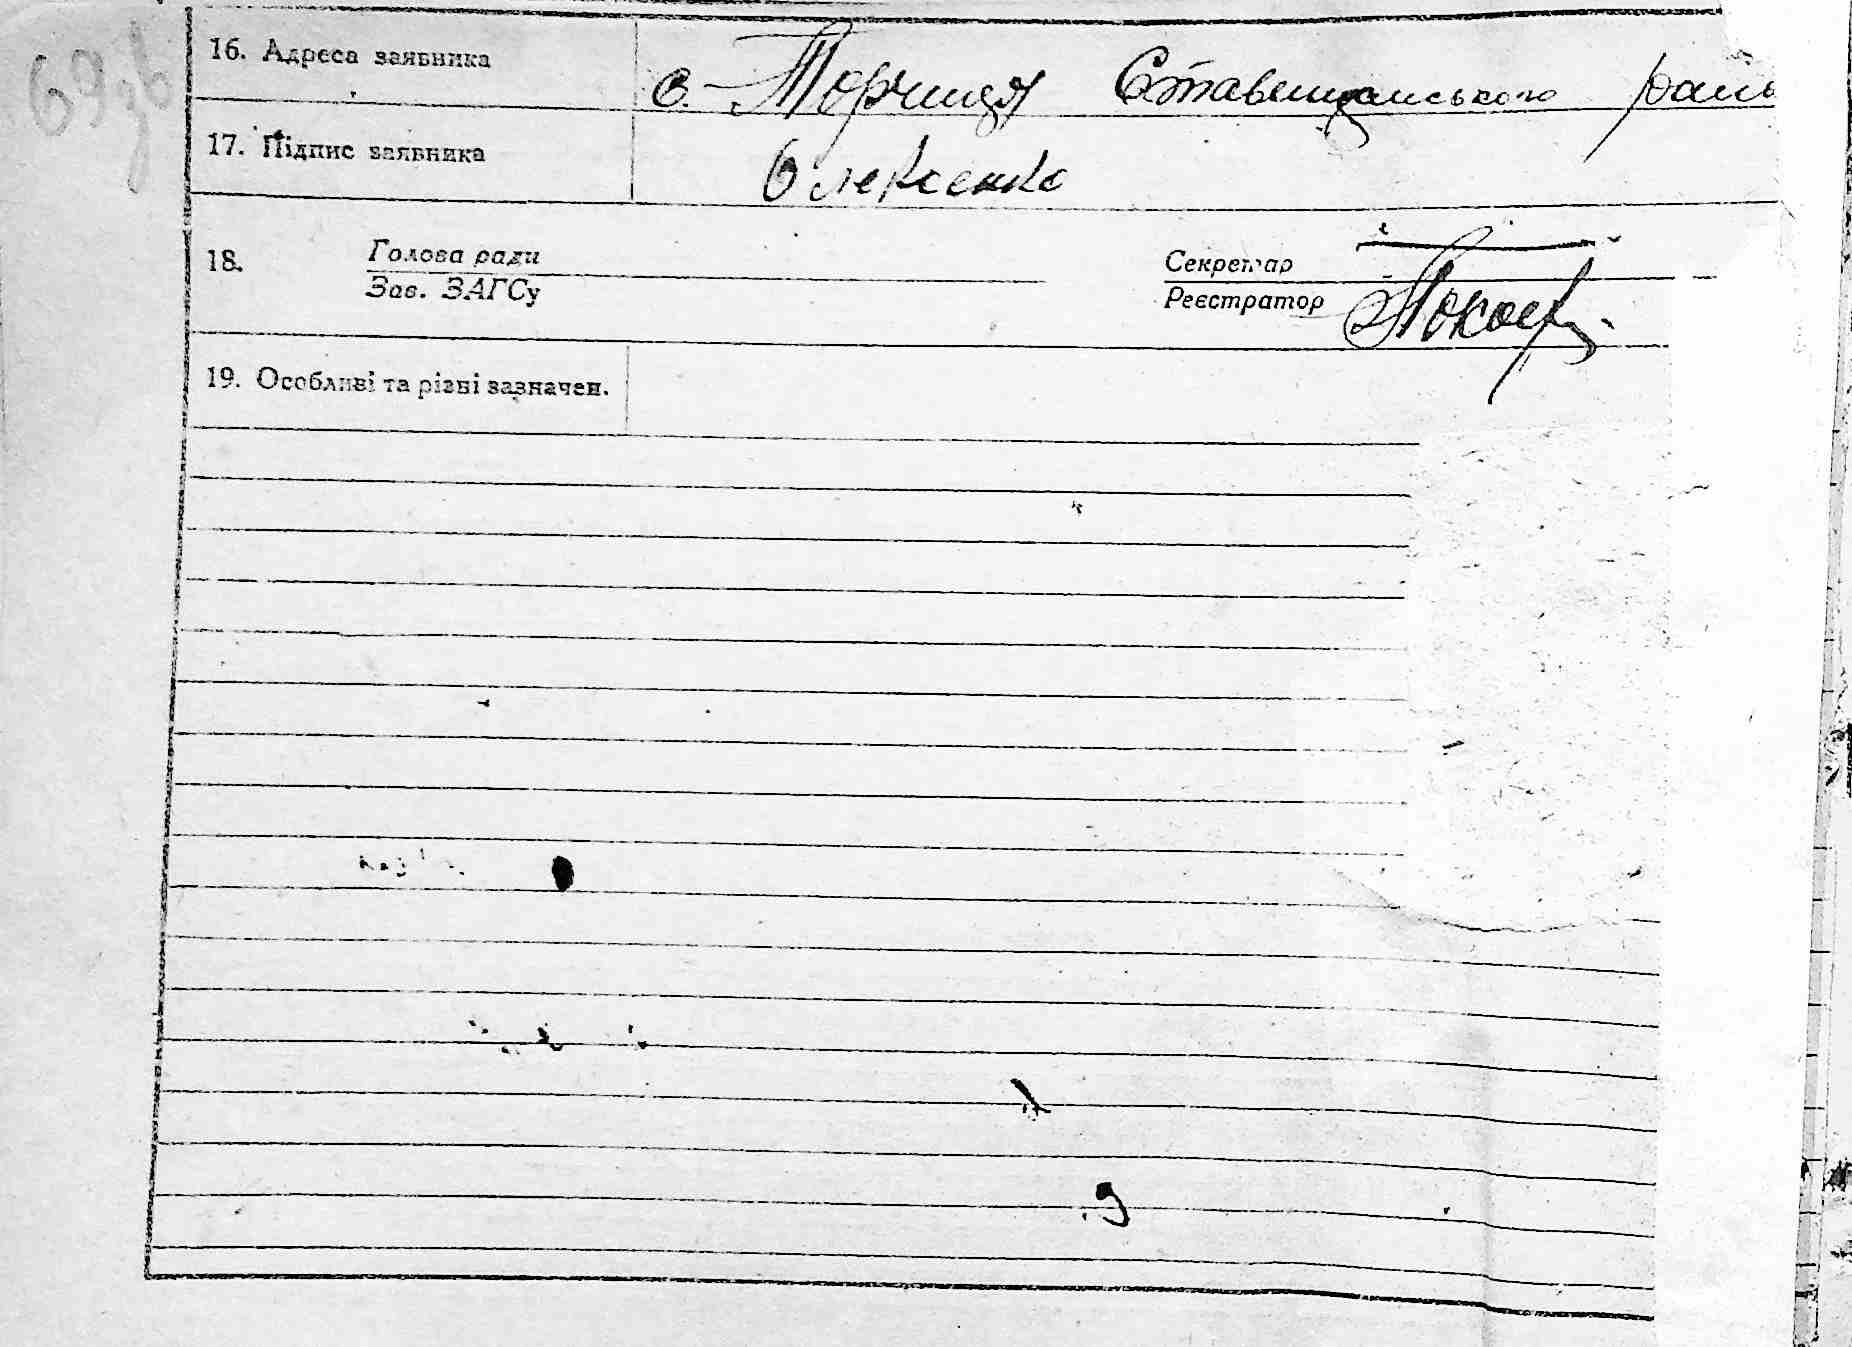 69зв
16. Адреса заявника с. Торчиця Ставищанського рай
17. Підпис заявника Олексенко
18. Голова ради Секретар
Зав. ЗАГСу Реєстратор
19. Особливі та різні зазначен.